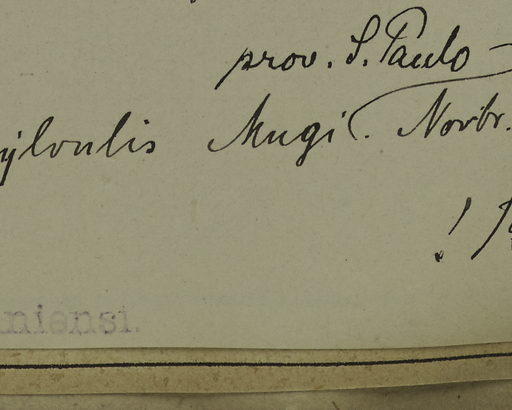 prov. S. Paulo
ylvulis Mugi. Novbr.
!
niensi.